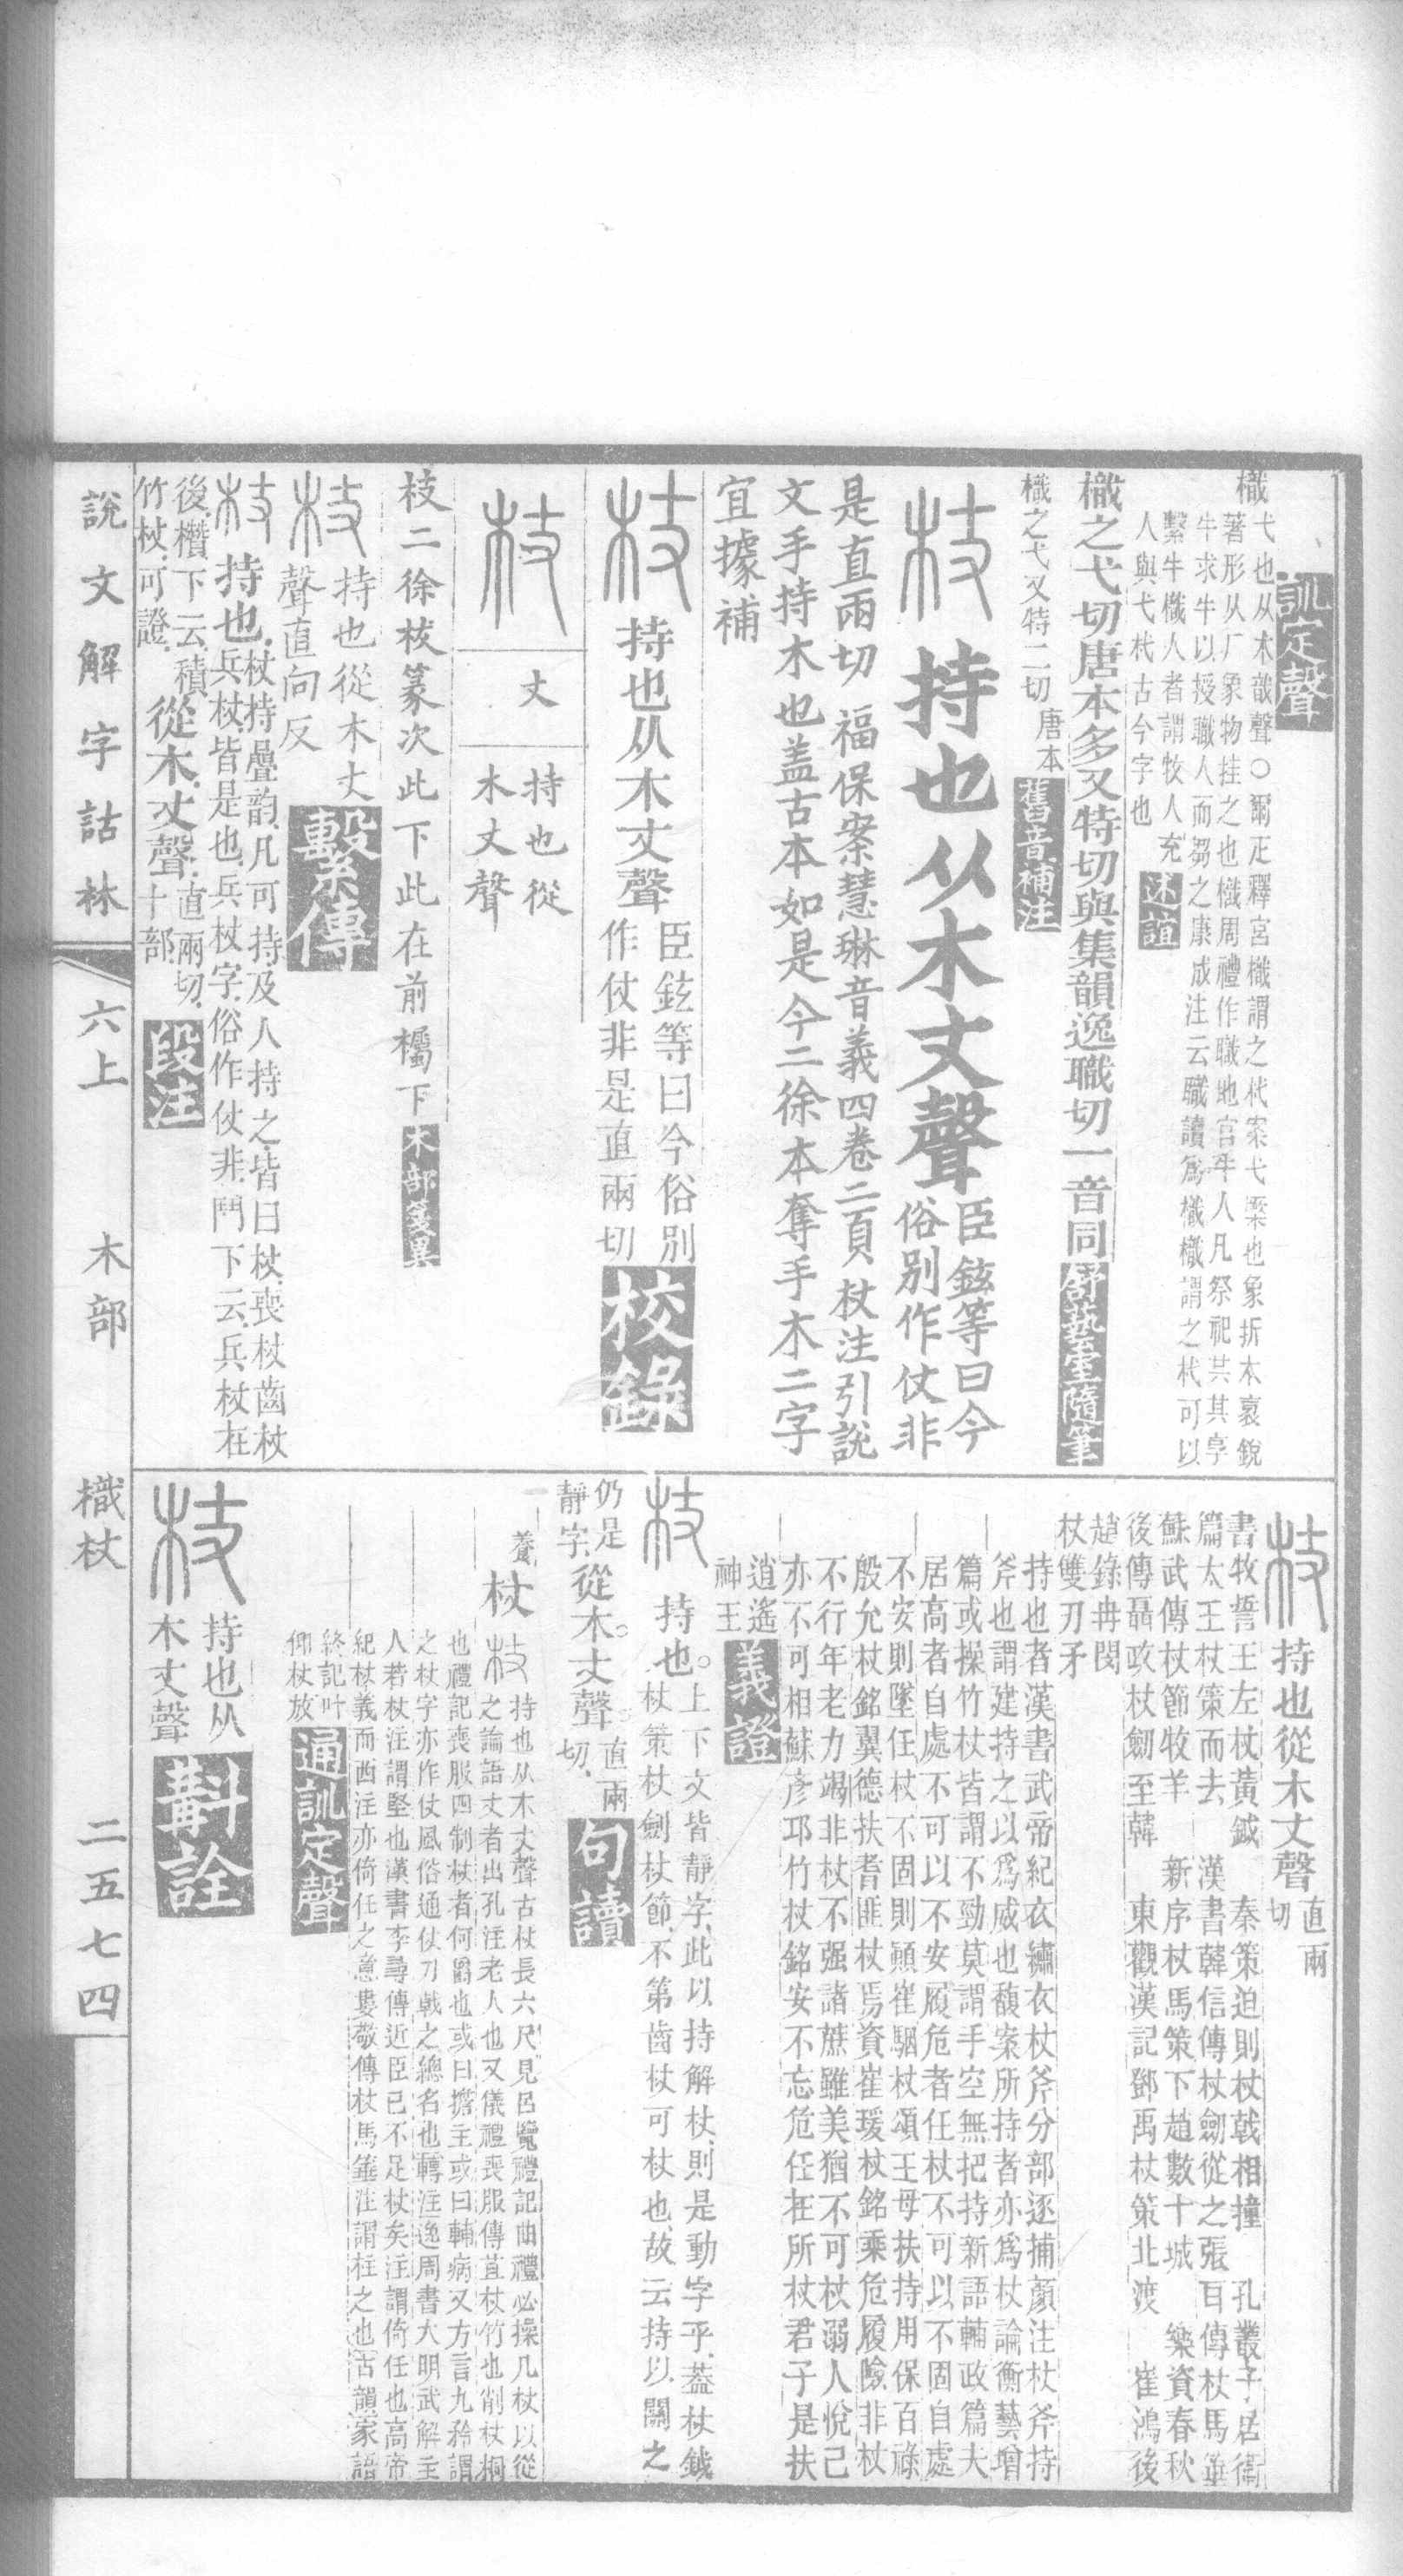 訓定聲
樴
弋也从木戠聲○爾疋釋宮樴謂之杙案弋橜也象折木衺銳
著形从厂象物挂之也樴周禮作職地官牛人凡祭祀共其享
牛求牛以授職人而芻之康成注云職讀爲樴樴謂之杙可以
繫牛樴人者謂牧人充
人與弋杙古今字也
述誼
樴之弋切唐本多又特切與集韻逸職切一音同
舒藝室隨筆
樴之弋又特二切
唐本
舊音補注
杖 持也从木丈聲
臣鉉等曰今
俗別作仗非
是直兩切 福保案慧琳音義四卷二頁杖注引說
文手持木也盖古本如是今二徐本奪手木二字
宜據補
杖 持也从木丈聲
臣鉉等曰今俗別
作仗非是直兩切
校錄
杖
丈
持也從
木丈聲
杖二徐杖篆次此下此在前欘下
木部箋異
杖 持也從木丈
聲直向反
繫傳
杖 持也
杖持曡韵凡可持及人持之皆曰杖喪杖齒杖
兵杖皆是也兵杖字俗作仗非鬥下云兵杖在
後欑下云積
竹杖可證
從木丈聲
直兩切
十部
段注
杖 持也從木丈聲
直兩
切
書牧誓王左杖黃鉞 秦策迫則杖戟相撞 孔叢子居衞
篇太王杖策而去 漢書韓信傳杖劒從之張耳傳杖馬箠
蘇武傳杖節牧羊 新序杖馬策下趙數十城 樂資春秋
後傳聶政杖劒至韓 東觀漢記鄧禹杖策北渡 崔鴻後
趙錄冉閔
杖雙刃矛
持也者漢書武帝紀衣繡衣杖斧分部逐捕顏注杖斧持
斧也謂建持之以爲威也馥案所持者亦爲杖論衡藝增
篇或操竹杖皆謂不勁莫謂手空無把持新語輔政篇夫
居高者自處不可以不安履危者任杖不可以不固自處
不安則墜任杖不固則顛崔駰杖頌王母扶持用保百祿
殷允杖銘翼德扶耆匪杖焉資崔瑗杖銘乘危履險非杖
不行年老力竭非杖不强諸蔗雖美猶不可杖溺人悅己
亦不可相蘇彥邛竹杖銘安不忘危任在所杖君子是扶
逍遙
神王
義證
杖 持也
上下文皆靜字此以持解杖則是動字乎葢杖鉞
杖策杖劍杖節不第齒杖可杖也故云持以關之
仍是
靜字
從木丈聲
直兩
切
句讀
養
杖
杖持也从木丈聲古杖長六尺見呂覽禮記曲禮必操几杖以從
之論語丈者出孔注老人也又儀禮喪服傳苴杖竹也削杖桐
也禮記喪服四制杖者何爵也或曰擔主或曰輔病又方言九矜謂
之杖字亦作仗風俗通仗刀戟之總名也轉注逸周書大明武解主
人若杖注謂堅也漢書李尋傳近臣已不足杖矣注謂倚任也高帝
紀杖義而西注亦倚任之意婁敬傳杖馬箠注謂柱之也古韻家語
終記叶
仰杖放
通訓定聲
杖
持也从
木丈聲
斠詮
說文解字詁林
六上
木部
樴杖
二五七四